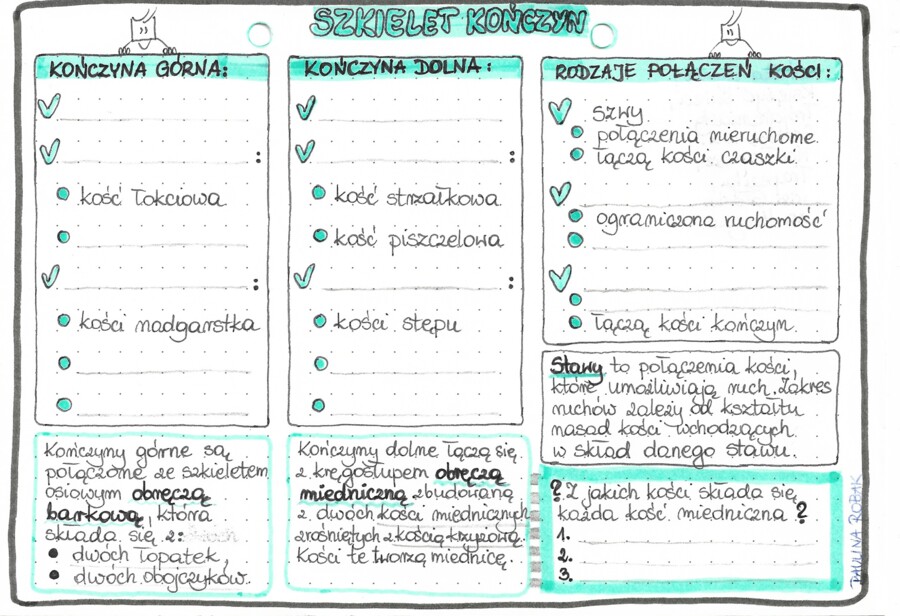 SZKIELET KOŃCZYN
KOŃCZYNA GÓRNA:
:
kość łokciowa
:
kości nadgarstka
Kończyny górne są
połączone ze szkieletem
osiowym obręczą
barkową, która
składa się z:
dwóch łopatek,
dwóch obojczyków.
KOŃCZYNA DOLNA:
:
kość strzałkowa
kość piszczelowa
:
kości stępu
Kończyny dolne łączą się
z kręgosłupem obręczą
miedniczną zbudowaną
z dwóch kości miednicznych
zrośniętych z kością krzyżową.
Kości te tworzą miednicę.
RODZAJE POŁĄCZEŃ KOŚCI:
szwy
połączenia nieruchome
łączą kości czaszki
ograniczona ruchomość
łączą kości kończyn
Stawy to połączenia kości,
które umożliwiają ruch. Zakres
ruchów zależy od kształtu
nasad kości wchodzących
w skład danego stawu.
? Z jakich kości składa się
każda kość miedniczna ?
1.
2.
3.
PAULINA ROBAK